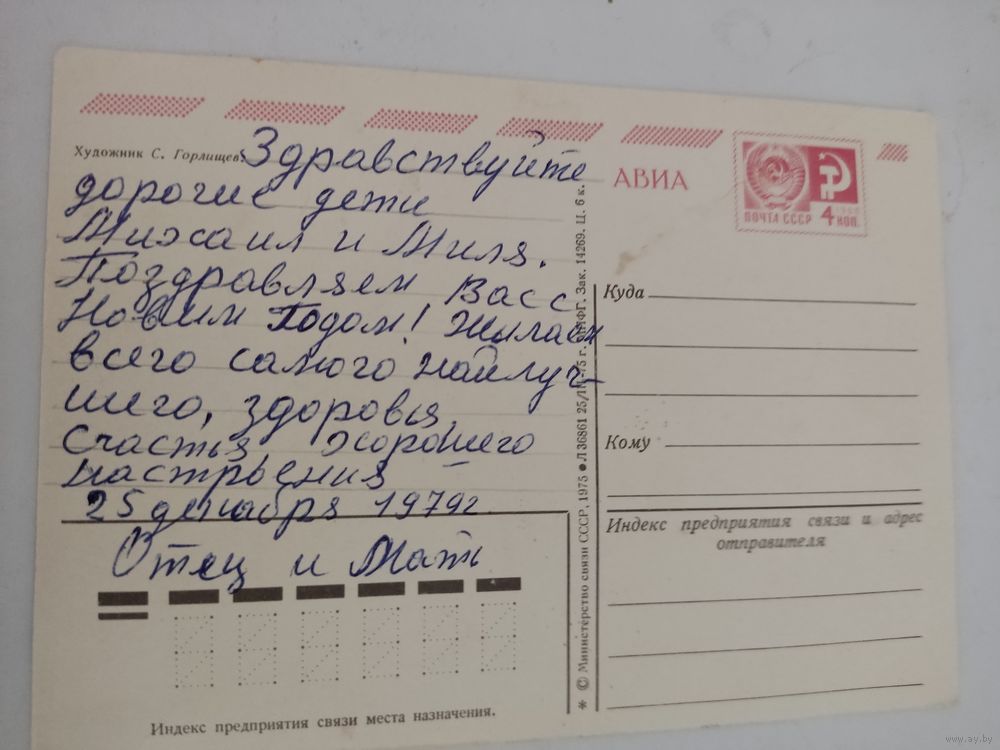 Художник С. Горлищев.
Здравствуйте
дорогие дети
Михаил и Миля.
Поздравляем Вас с
Новым Годом! Жылаем
всего самого найлуч-
шего, здоровья,
счастья, хорошего
настроения
25 декабря 1979г
Отец и Мать
АВИА
ПОЧТА СССР
4 коп.
1966
Куда
Кому
Индекс предприятия связи и адрес
отправителя
Индекс предприятия связи места назначения.
* © Министерство связи СССР, 1975 ● Л 36861 25/III-75 г. МПФГ. Зак. 14269. Ц. 6 к.
www.ay.by